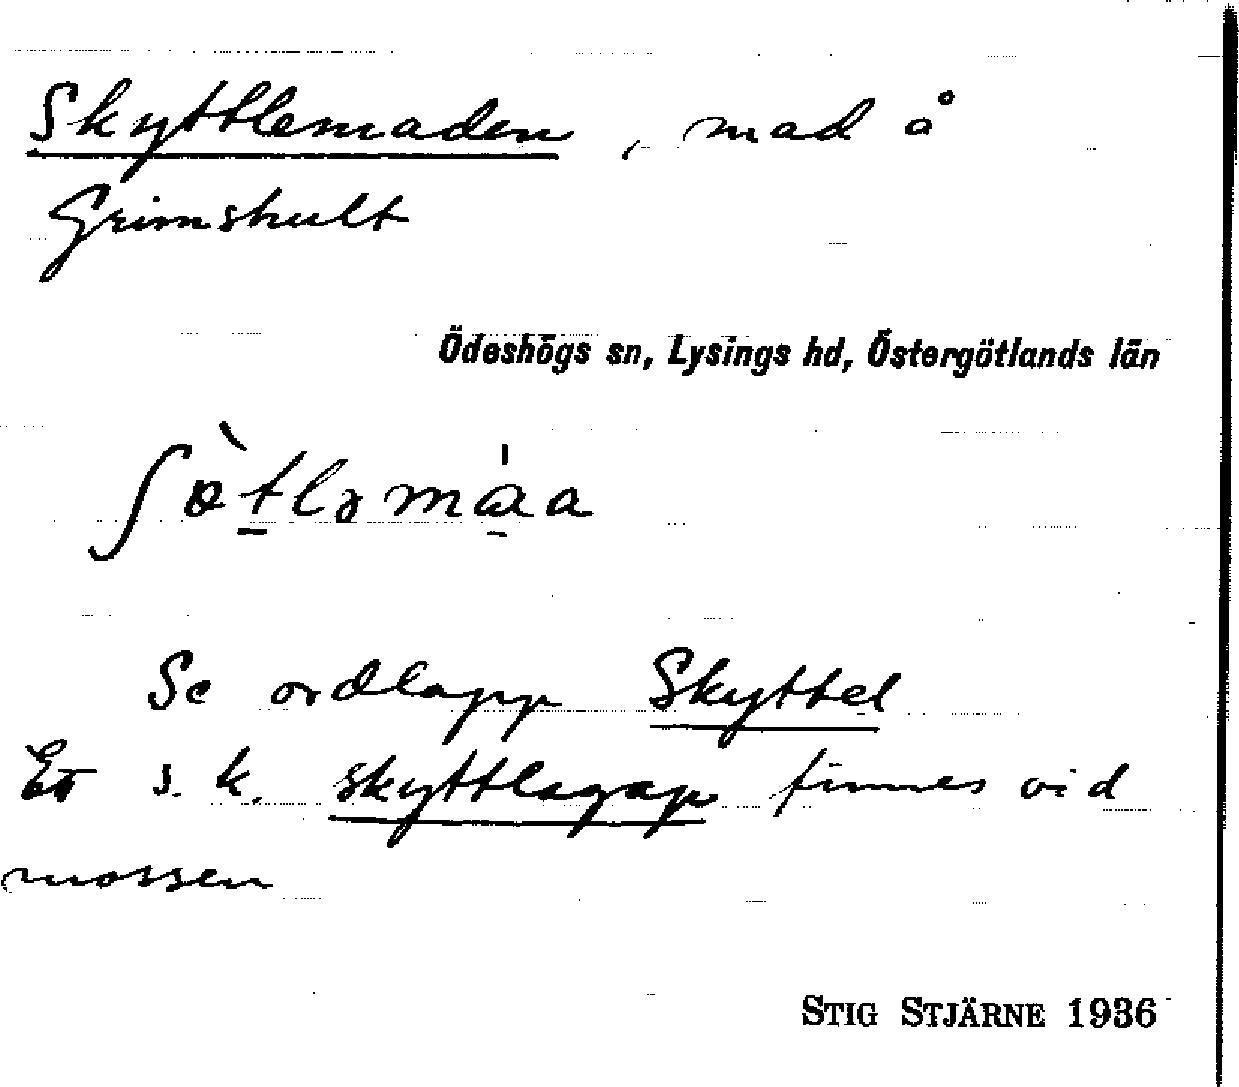 Skyttlemaden, mad å
Grimshult
Ödeshögs sn, Lysings hd, Östergötlands län
Se ordlapp Skyttel
Ett s. k. skyttlagap finnes vid
mossen
STIG STJÄRNE 1936